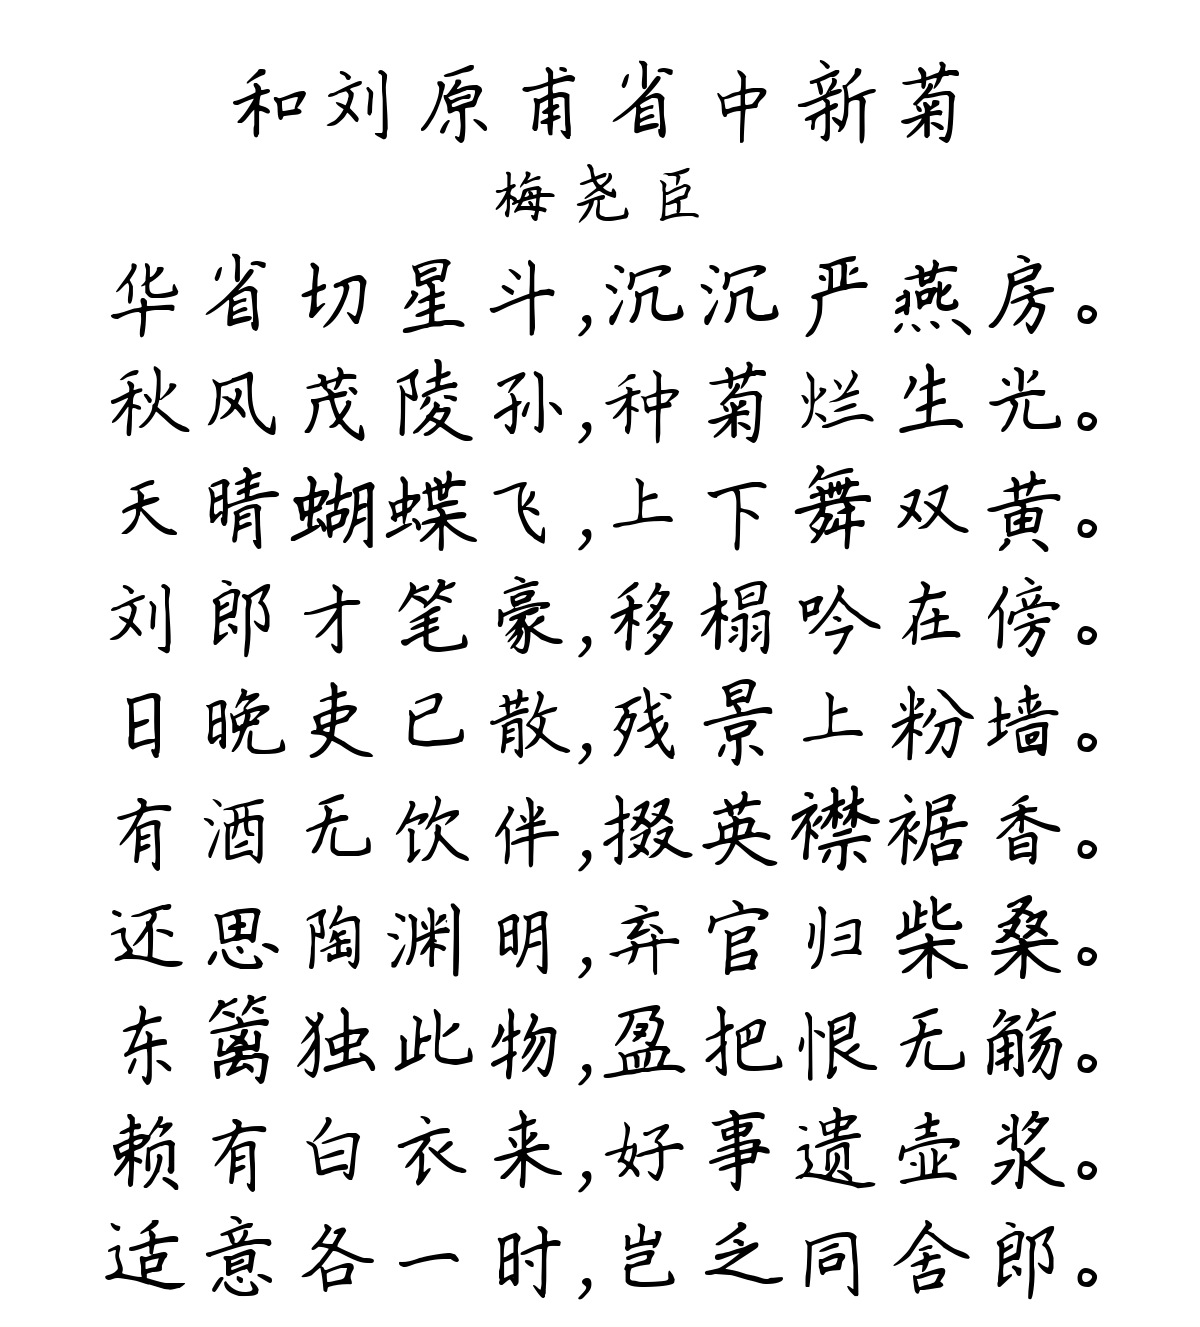 和刘原甫省中新菊
梅尧臣
华省切星斗,沉沉严燕房。
秋风茂陵孙,种菊烂生光。
天晴蝴蝶飞,上下舞双黄。
刘郎才笔豪,移榻吟在傍。
日晚吏已散,残景上粉墙。
有酒无饮伴,掇英襟裾香。
还思陶渊明,弃官归柴桑。
东篱独此物,盈把恨无觞。
赖有白衣来,好事遗壶浆。
适意各一时,岂乏同舍郎。